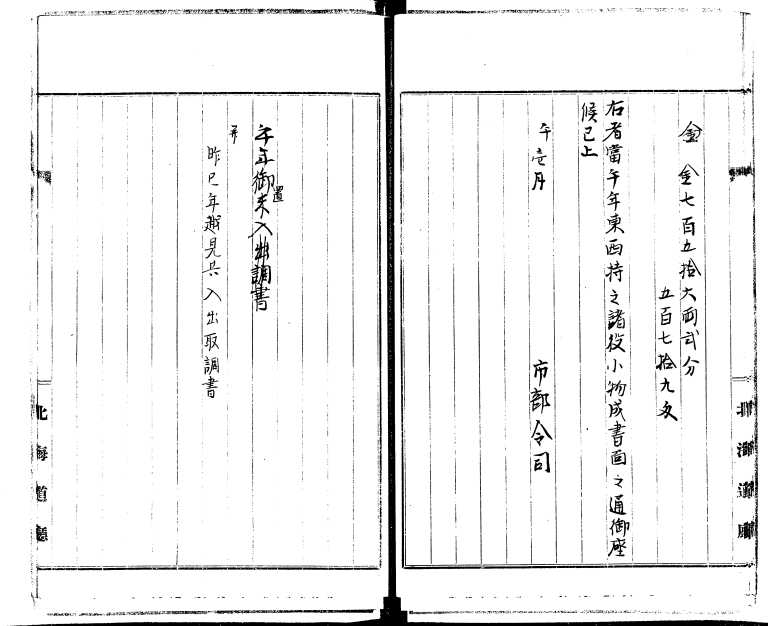 金 金七百五拾六両弐分
五百七拾九文
右者當午年東西持之諸役小物成書面之通御座
候已上
午壱月
市部令司
北海道廳
午年御置米入出調書
并
昨巳年越見共入出取調書
北海道廳